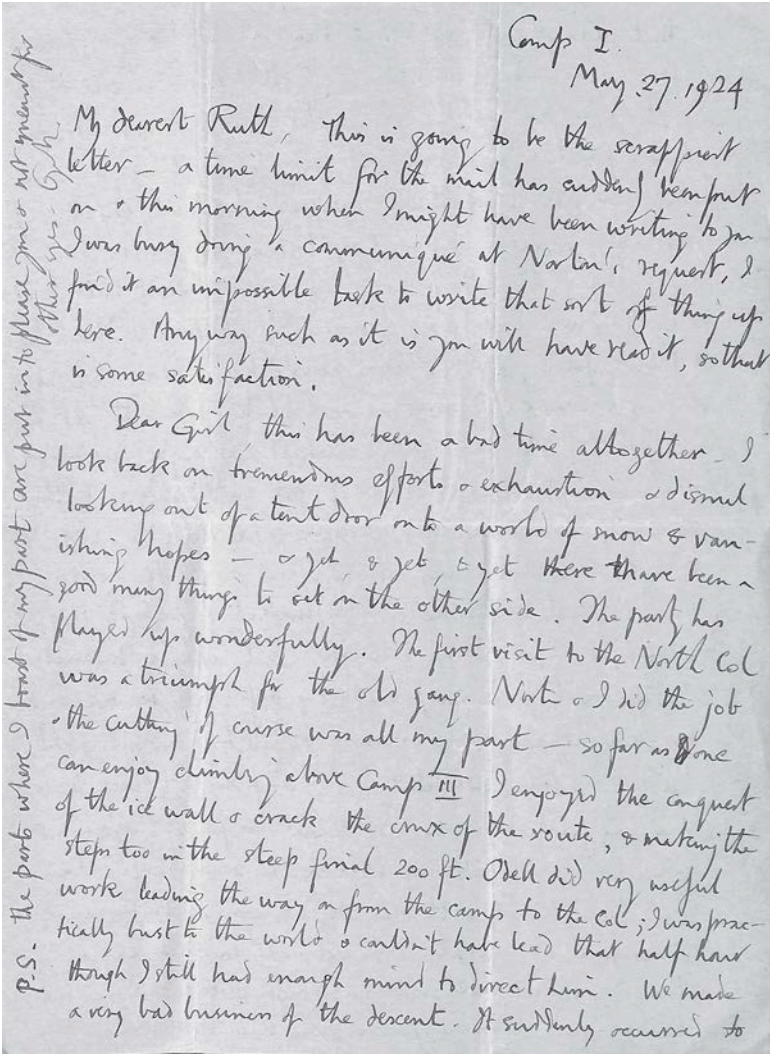 Camp I.
May 27. 1924
My dearest Ruth, This is going to be the scrappiest
letter – a time limit for the mail has suddenly been put
on & this morning when I might have been writing to you
I was busy doing a communiqué at Norton's request, I
find it an impossible task to write that sort of thing up
here. Anyway such as it is you will have read it, so that
is some satisfaction.
Dear Girl, this has been a bad time altogether – I
look back on tremendous efforts & exhaustion & dismal
looking out of a tent door onto a world of snow & van-
ishing hopes – & yet, & yet, & yet there have been a
good many things to set on the other side. The party has
played up wonderfully. The first visit to the North Col
was a triumph for the old gang. Norton & I did the job
& the cutting of course was all my part – so far as one
can enjoy climbing above Camp III I enjoyed the conquest
of the ice wall & crack the crux of the route, & making the
steps too in the steep final 200 ft. Odell did very useful
work leading the way on from the camp to the Col; I was prac-
tically bust to the world & couldn't have lead that half hour
though I still had enough mind to direct him. We made
a very bad business of the descent. It suddenly occurred to
P.S. the parts where I boast of my part are put in to please you & not meant for
other eyes. G.M.